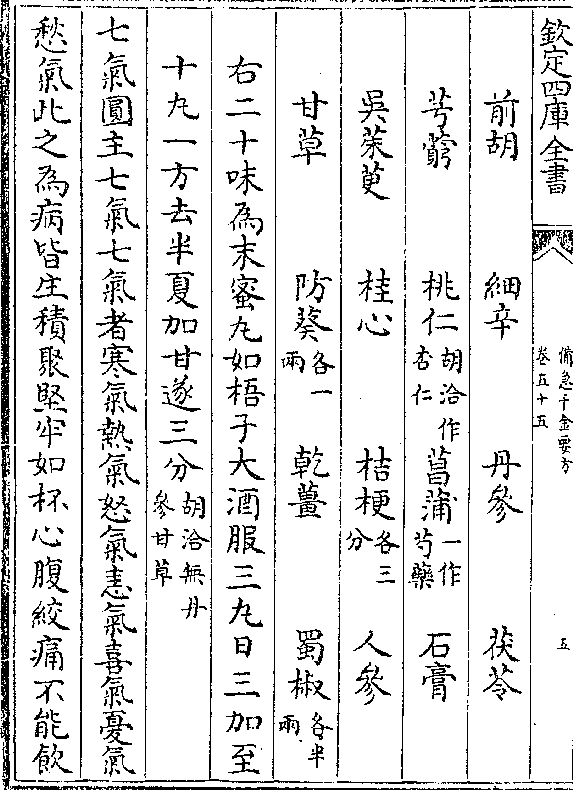 欽定四庫全書
備急千金要方
卷五十五
五
前胡 細辛 丹參 茯苓
芎藭 桃仁胡洽作杏仁 菖蒲一作芍藥 石膏
吳茱萸 桂心 桔梗各三分 人參
甘草 防葵各一兩 乾薑 蜀椒各半兩
右二十味為末蜜丸如梧子大酒服三丸日三加至
十丸一方去半夏加甘遂三分胡洽無丹參甘草
七氣圓主七氣七氣者寒氣熱氣怒氣恚氣喜氣憂氣
愁氣此之為病皆生積聚堅牢如杯心腹絞痛不能飲